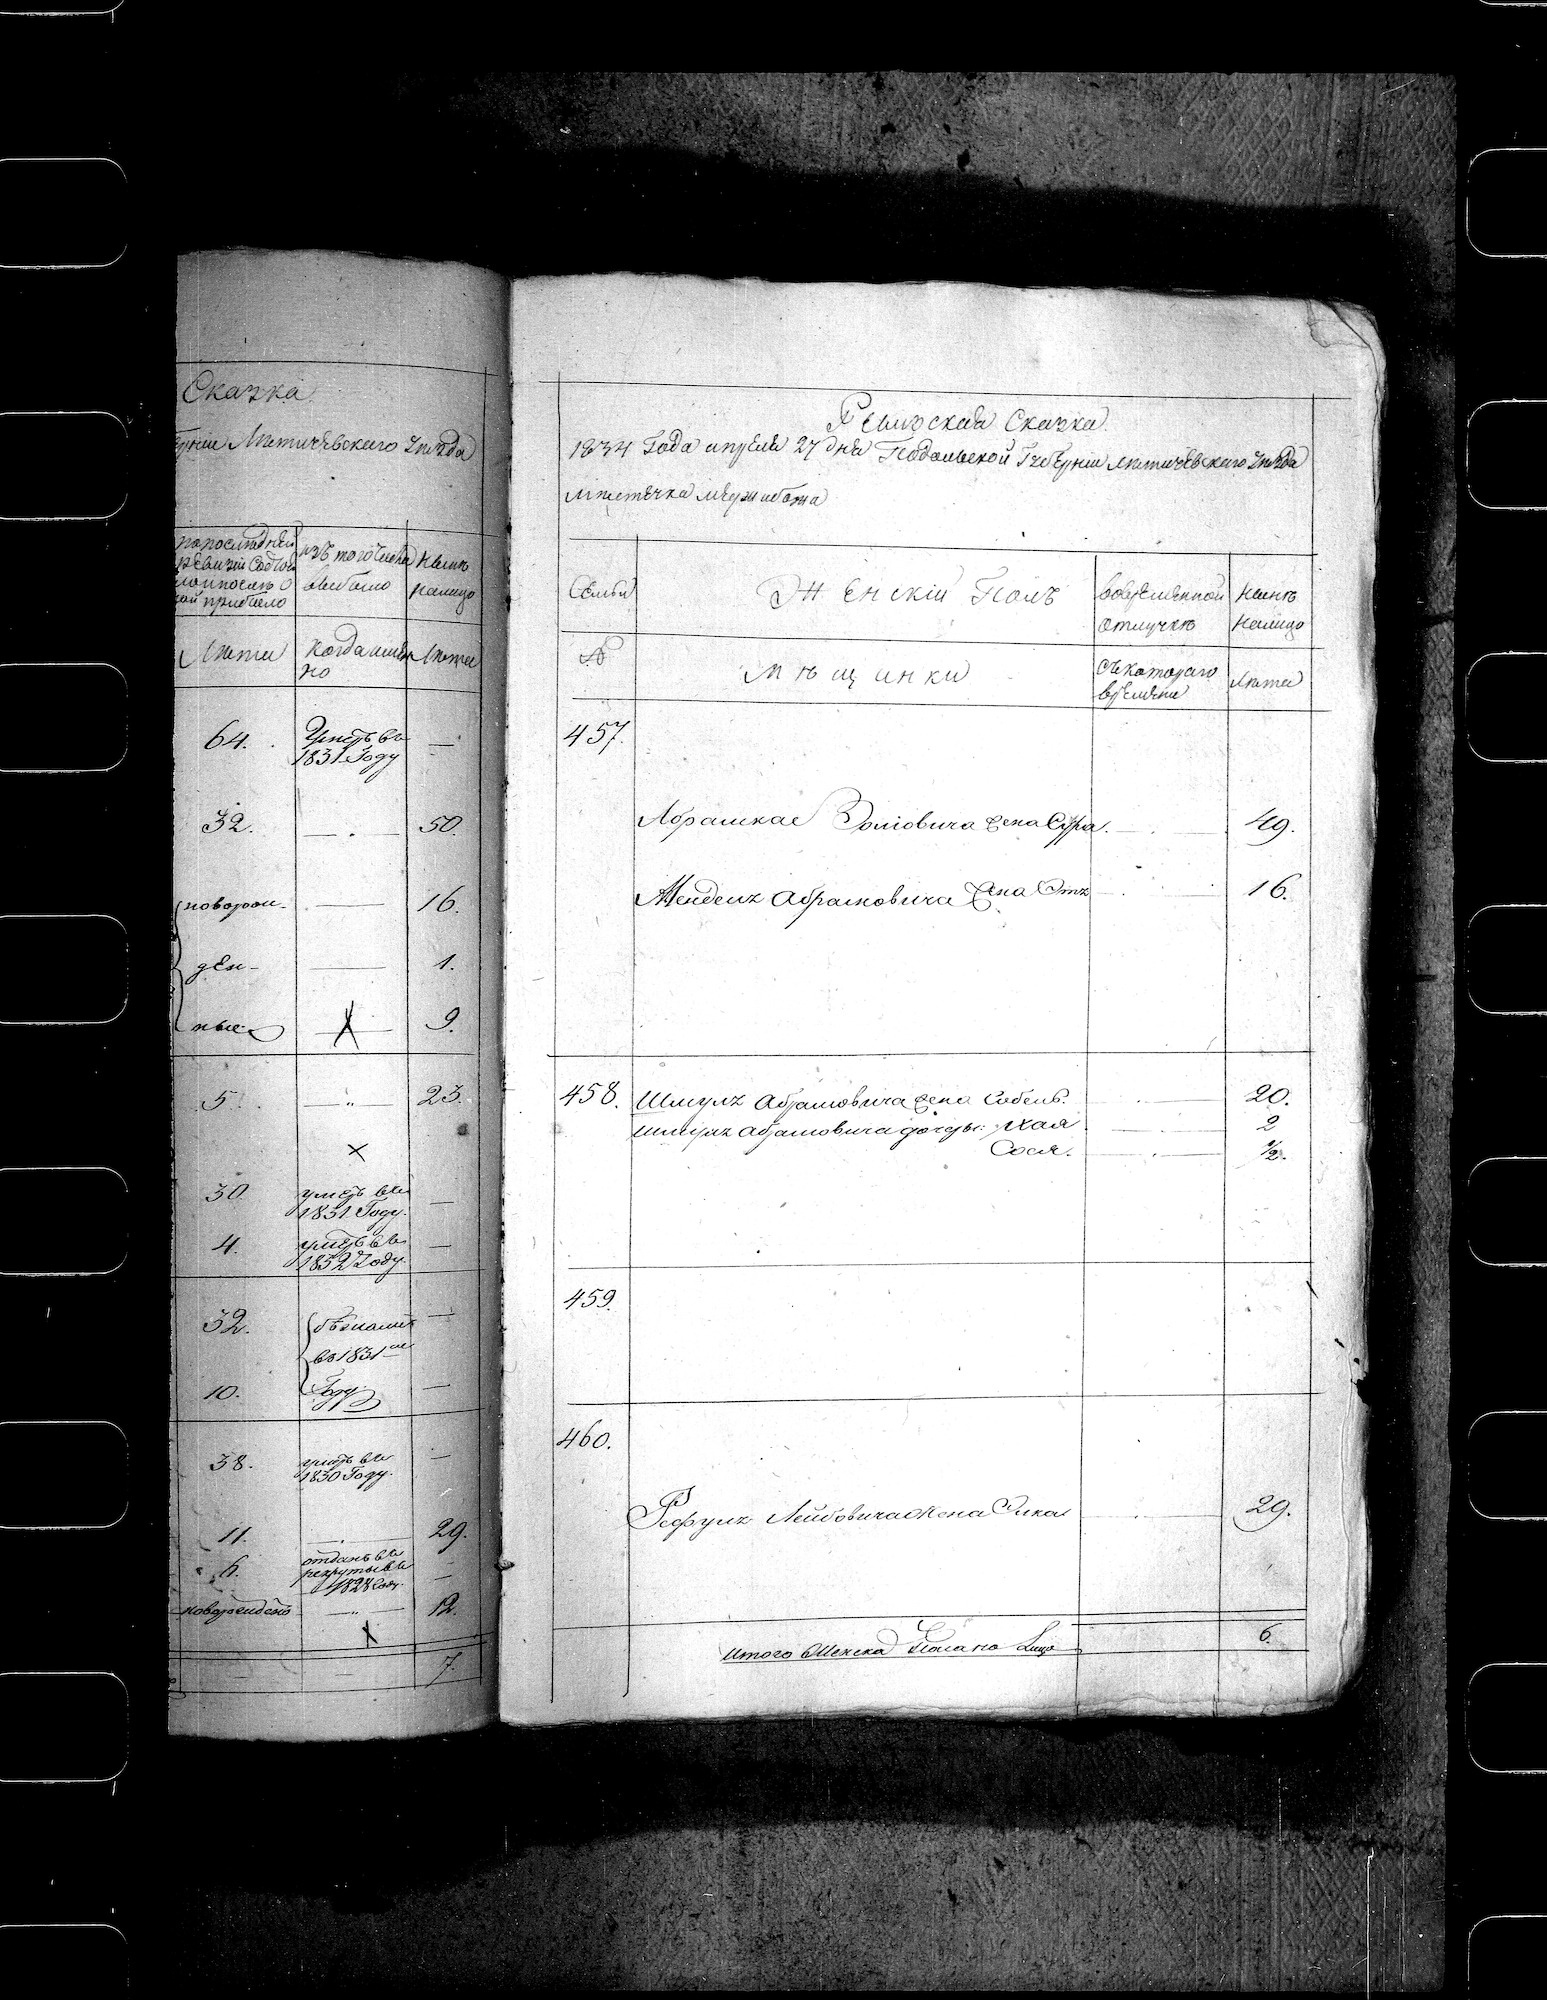 Сказка
Губерніи Летичевскаго уезда
по последней
ревизіи состоя
ло и после о
ной прибыло
изъ того числа
выбыло
ныне
налицо
Лета
когда имян
но
Лета
64.
Умеръ въ
1831 Году
—
32.
50.
новорож-
16.
ден-
1.
ные
9.
5
23.
30.
умеръ въ
1831 Году.
—
4.
умеръ въ
1832 Году.
—
32.
въ 1831 м
Году
—
10.
—
38.
умеръ въ
1830 Году.
—
11.
29.
6.
отданъ въ
рекруты въ
1828 Году.
—
новорожденъ
12.
7.
Ревизская Сказка
1834 Года апреля 27 дня Подольской Губерніи Летичевскаго уезда
местечка Меджибожа
Семьи
Женскій Полъ
во временной
отлучке
ныне
налицо
№
Мещанки
съ котораго
времени
Лета
457.
Абрамка жена Сура.
49.
Мендель Абрамовича жена
16.
458.
Шмуль Абрамовича жена
20.
Шмуль Абрамовича дочери: Хая
2
Сося.
1/2.
459.
460.
Лейбовича жена
29.
Итого Женска Пола на Лицо
6.